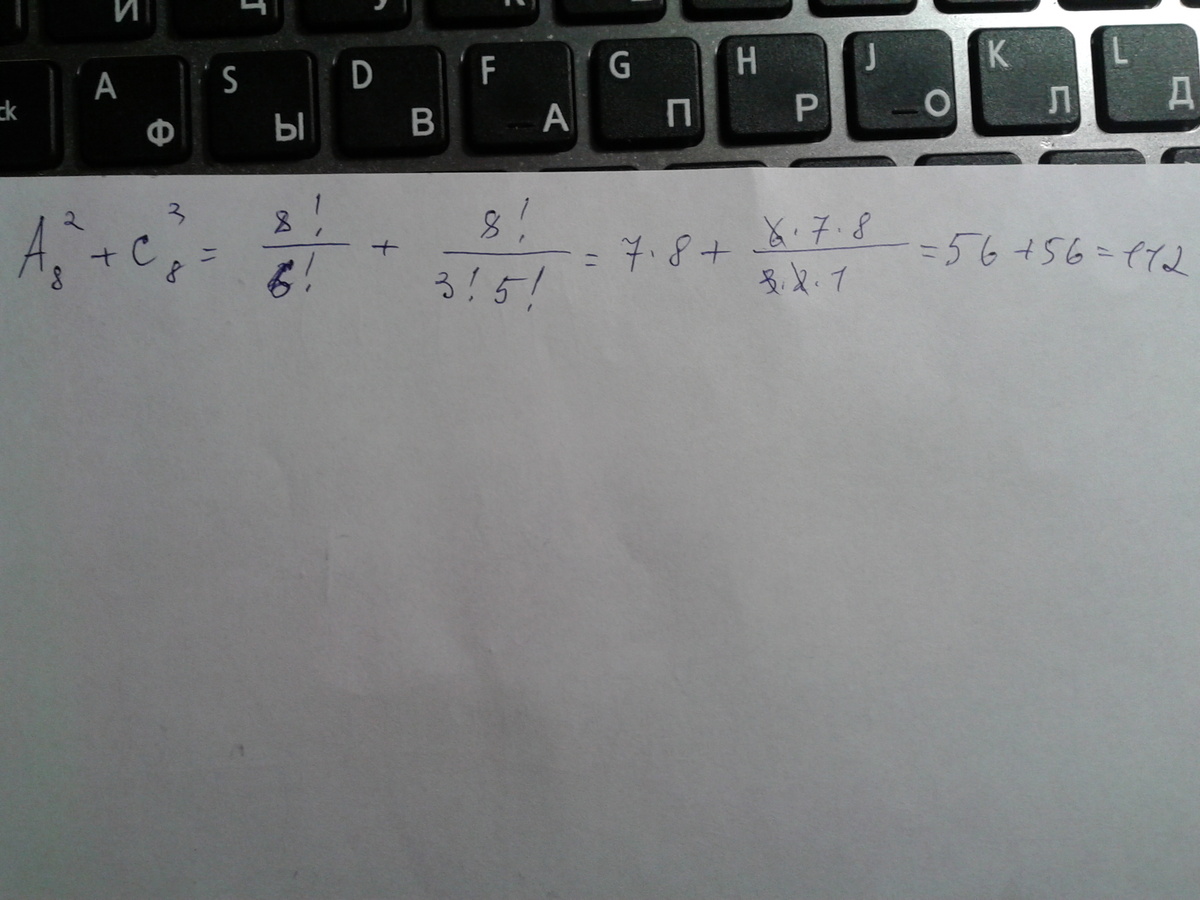 И Ц У К
ck A Ф S Ы D В F А G П H Р J О K Л L Д
A₈² + C₈³ = 8!/6! + 8!/(3! 5!) = 7·8 + (6·7·8)/(3·2·1) = 56 + 56 = 112